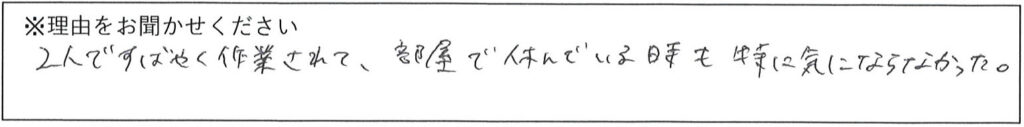 ※理由をお聞かせください
2人ですばやく作業されて、部屋で休んでいる時も特に気にならなかった。